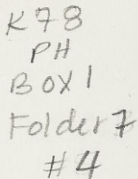 K78
PH
BOX 1
Folder 7
#4